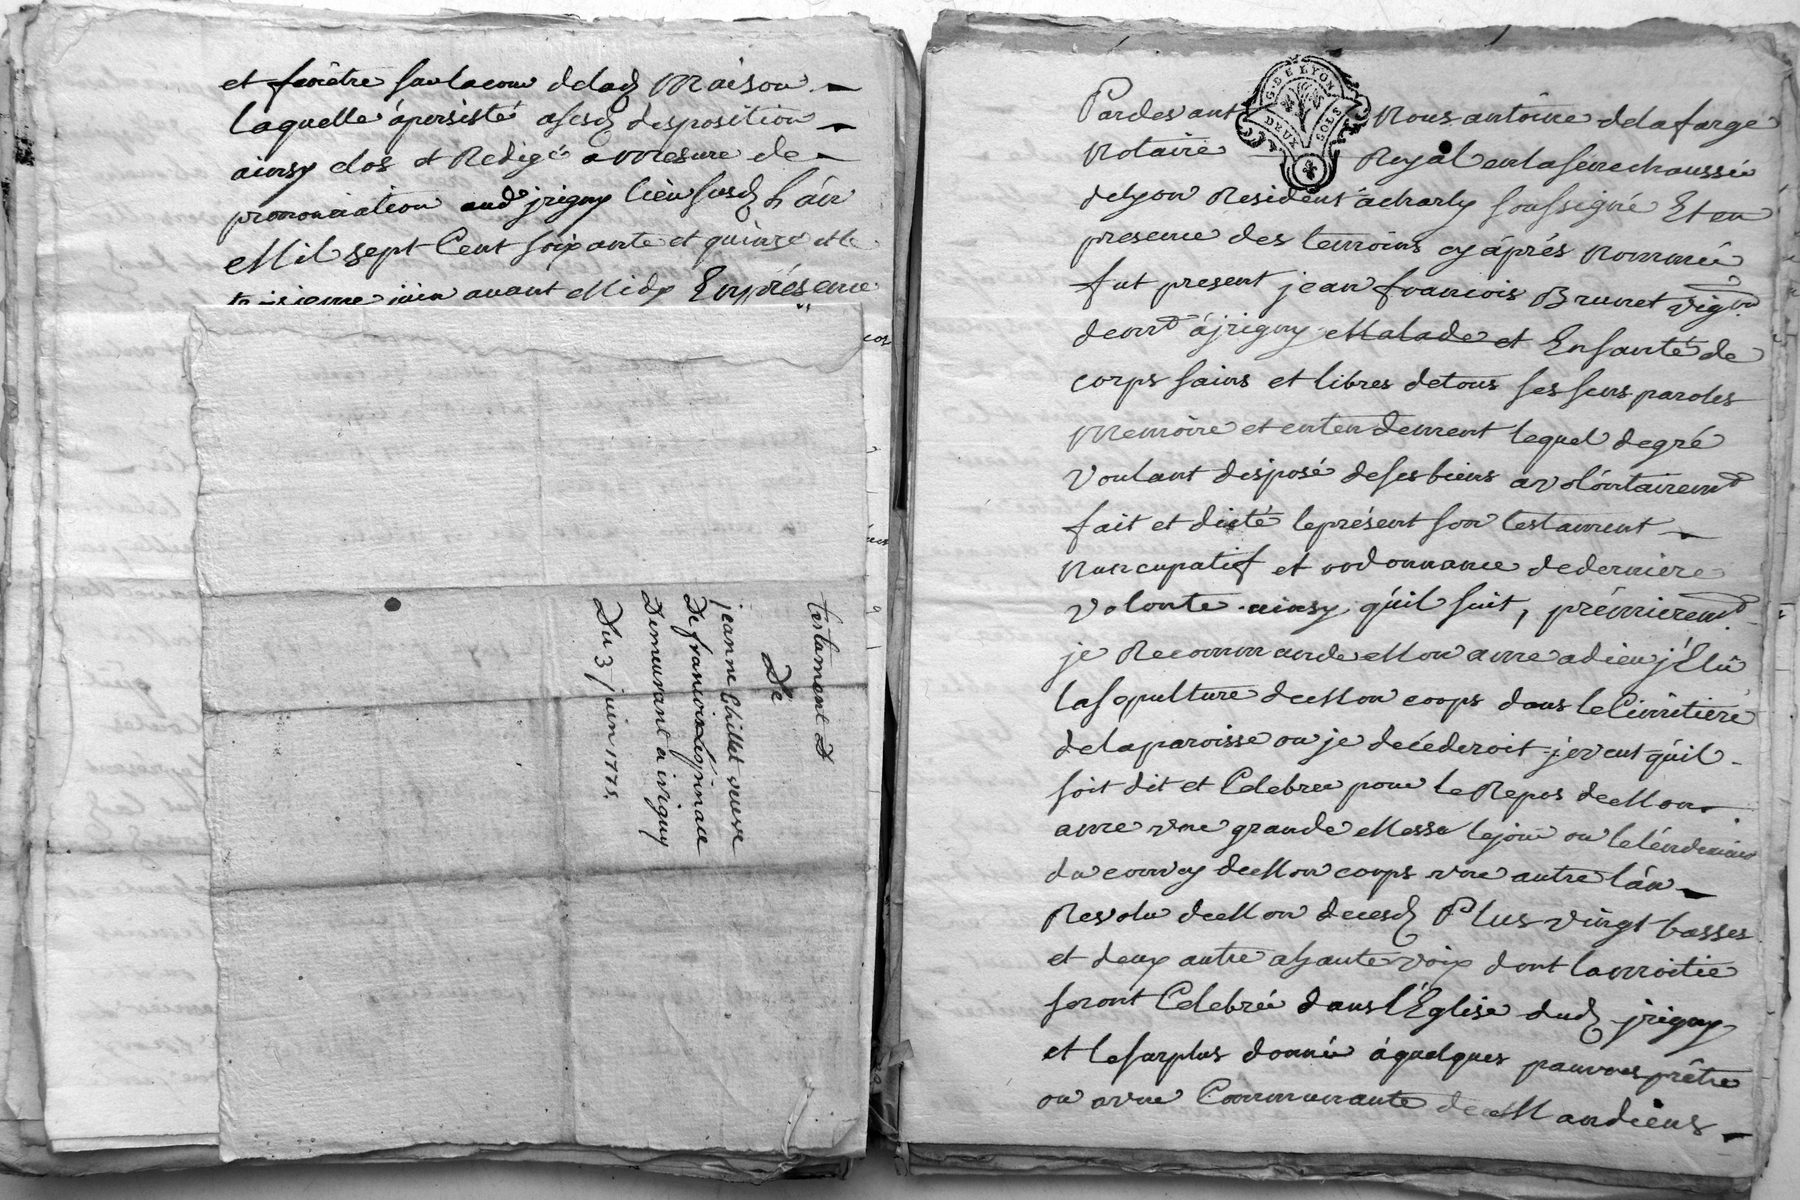 et fenêtre sur la cour delad maison
laquelle á persisté asesd désposition
ainsy clos et Redigé a mesure de
prononciation aud jrigny lieu susd l'án
Mil sept Cent soixante et quinze et le
troisieme juin avant Midy En présence
Testament
De
jeanne Chillet veuve
De francois Lépinace
Demeurant a irigny
Du 3 juin 1775.
Pardevant Nous antoine delafarge
G. DE LYON
DEUX SOLS
Notaire Royal en la senechaussée
de Lyon Resident ácharly soussigné Et en
presence des temoins cy áprés nommé
fut present jean francois Brunet vign
demt ájrigny Malade et En santé de
corps sains et libres de tous ses sens paroles
Memoire et entendement lequel de gré
voulant disposé de ses biens a volóntairemt
fait et dicté le présent son testament
Nuncupatif et ordonnance de derniere
volonte ainsy qúil suit, prémieremt
je Recommande Mon ame a dieu j'Elû
la sepulture de Mon corps dans le Cimitiere
de la paroisse ou je decéderoit je veut qúil
soit dit et Celebree pour le Repos de Mon
ame vne grande Messe le jour ou le léndemain
du convoy de Mon corps vne autre l'án
Revolu de Mon decesd Plus vingt basses
et deux autre a hante voix dont la moitie
seront Celebrée dans l'Eglise dud jrigny
et le surplus donnée á quelques pauvres prêtre
ou a vne Communante de Mandiens